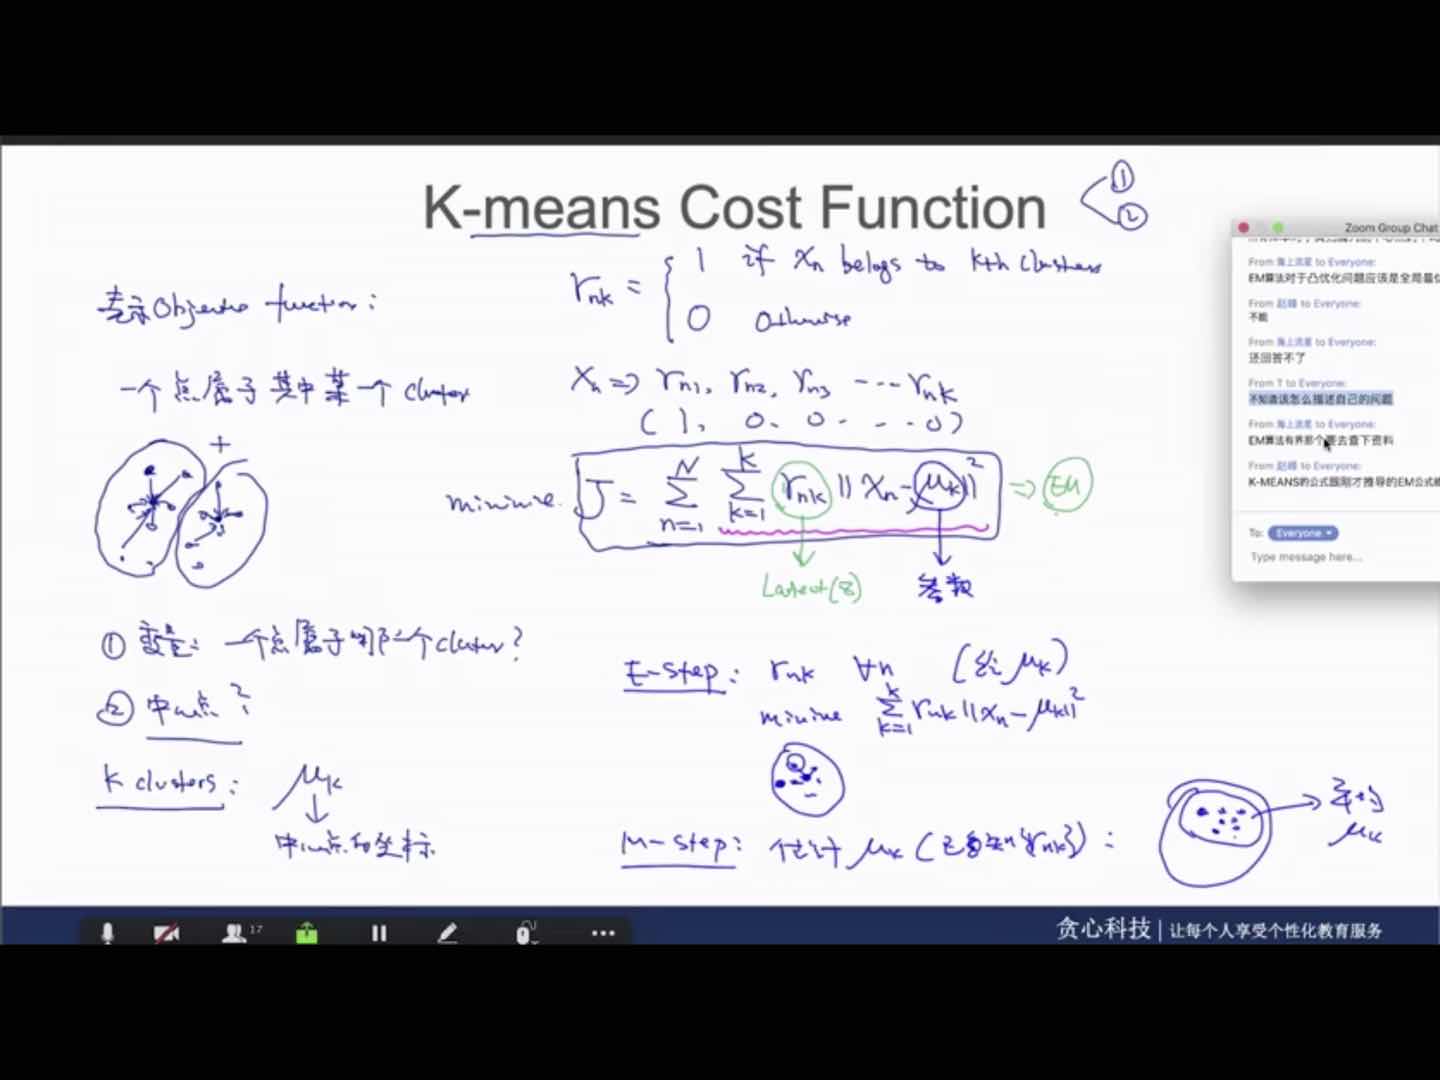 K-means Cost Function
①
②
Objective function:
r_nk = { 1 if x_n belogs to kth clusters
0 otherwise
一个点属于其中某一个 cluster
x_n => r_n1, r_n2, r_n3 --- r_nk
(1, 0. 0. --- 0)
+
minimize. J = Σ_{n=1}^{N} Σ_{k=1}^{k} r_nk ||x_n - μ_k||² => EM
Latent(z)
参数
① 变量: 一个点属于哪一个cluster?
② 中心点?
K clusters: μ_k
中心点的坐标
E-step: r_nk ∀n (给 μ_k)
minimize Σ_{k=1}^{k} r_nk ||x_n - μ_k||²
M-step: 估计 μ_k (已知 {r_nk}):
平均
μ_k
Zoom Group Chat
From 海上流星 to Everyone:
EM算法对于凸优化问题应该是全局最
From 赵峰 to Everyone:
不能
From 海上流星 to Everyone:
还回答不了
From T to Everyone:
不知道该怎么描述自己的问题
From 海上流星 to Everyone:
EM算法有界那个要去查下资料
From 赵峰 to Everyone:
K-MEANS的公式跟刚才推导的EM公式
To: Everyone
Type message here...
17
贪心科技 | 让每个人享受个性化教育服务